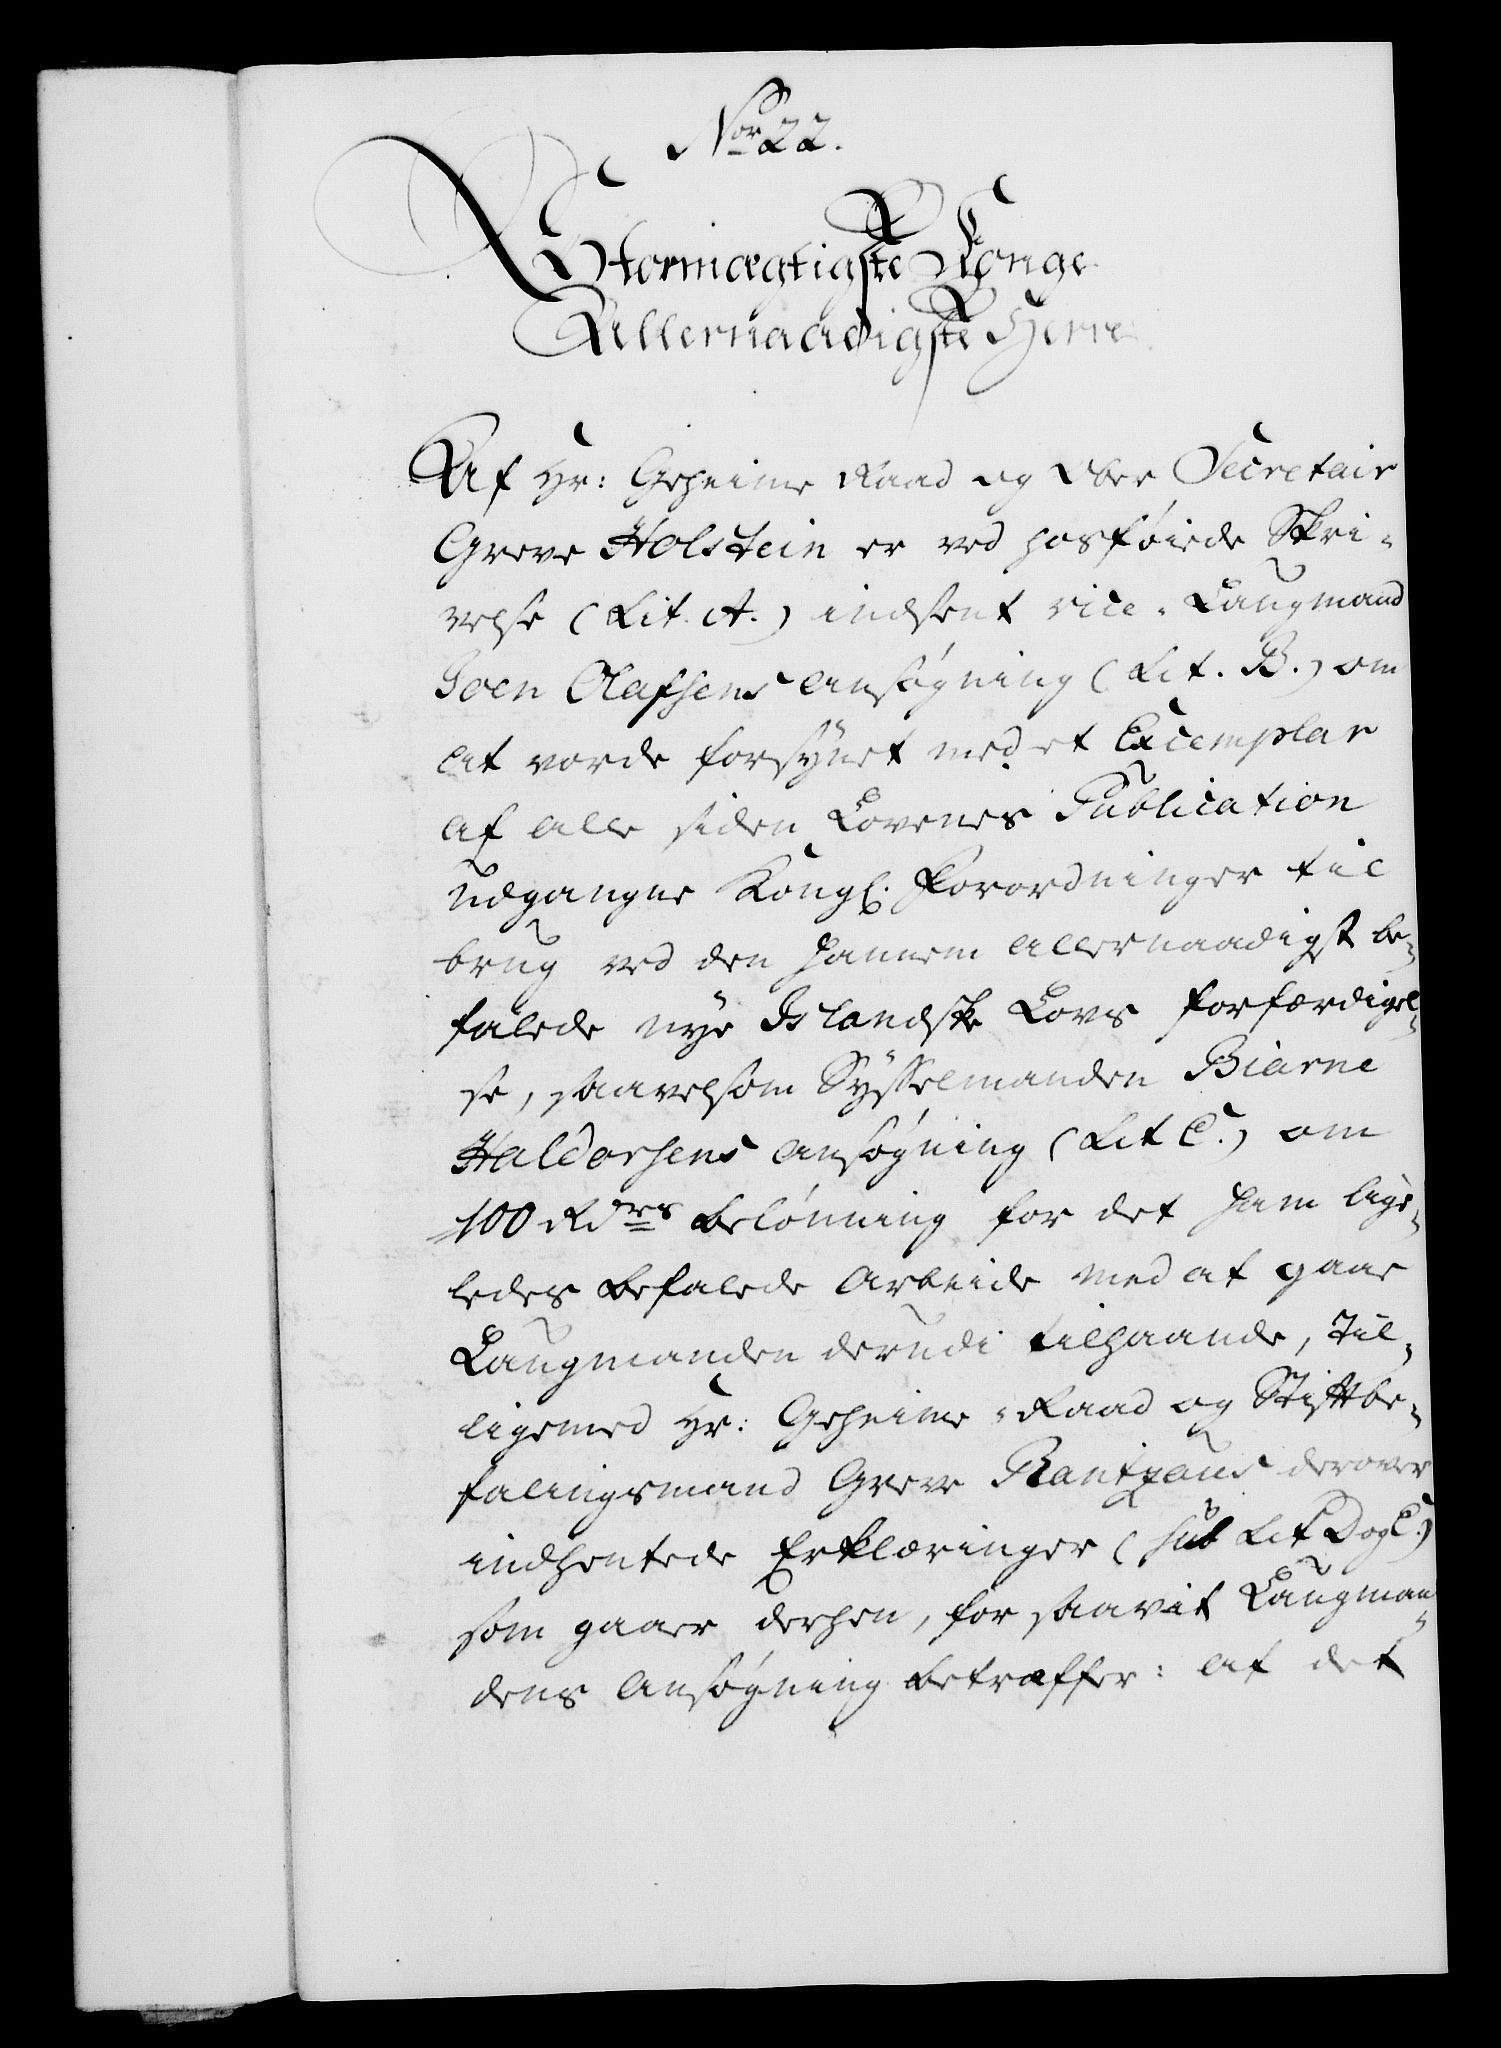 Nor 22.
Stormægtigste Konge
Allernaadigste Herre
Af Hr: Geheime Raad og Ober Secretair
Greve Holstein er ved hosføiede Skri-
velse (Lit. A.) indsent vice-Laugmand
Joen Olafsens Ansøgning (Lit. B.) om
at vorde forsÿnet med et Exemplar
af alle siden Lovenes Publication
udgangne Kongl. Forordninger til
brug ved den hannem allernaadigst be-
falede nÿe Islandske Lovs forfærdigel-
se, saavelsom Sÿsselmanden Biarne
Haldorsens Ansøgning (Lit C.) om
100 Rdrs belønning for det ham lige-
ledes befalede Arbeide med at gaae
Laugmanden derudi tilhaande, Til-
ligemed Hr: Geheime-Raad og Stiftbe-
falingsmand Greve Rantzaus derover
indhentede Erklæringer (sub Lit D og E.)
som gaaer derhen, for saavit Laugman-
dens Ansøgning betræffer: at det